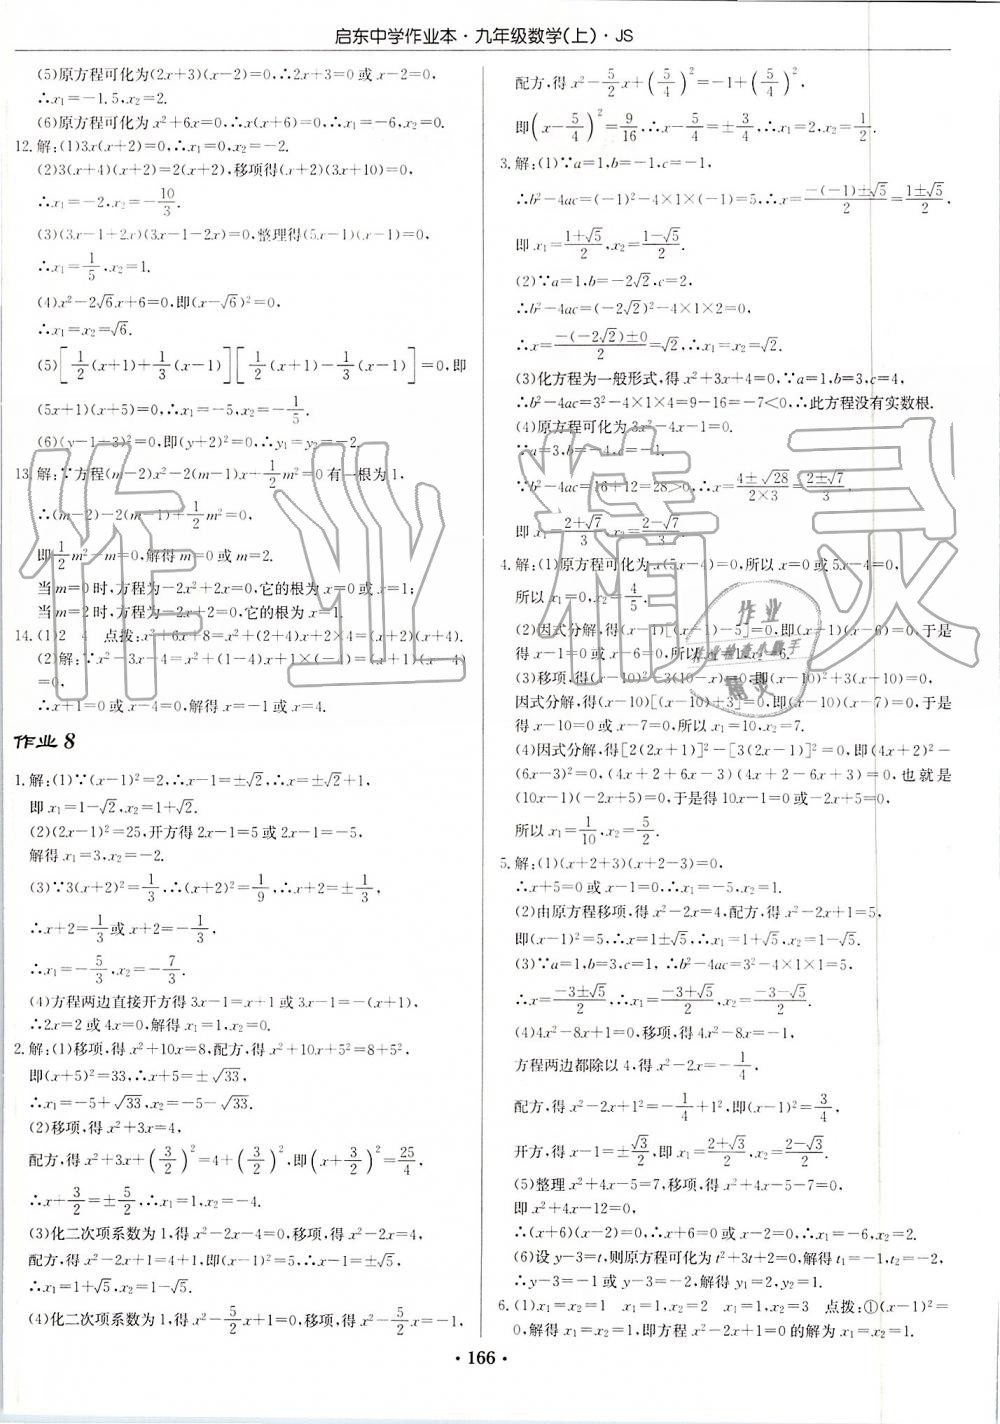 启东中学作业本·九年级数学(上)·JS
(5)原方程可化为(2x+3)(x-2)=0,∴2x+3=0或x-2=0.
∴x₁=-1.5,x₂=2.
(6)原方程可化为x²+6x=0,∴x(x+6)=0,∴x₁=-6,x₂=0.
12.解:(1)3x(x+2)=0,∴x₁=0,x₂=-2.
(2)3(x+4)(x+2)=2(x+2),移项得(x+2)(3x+10)=0,
∴x₁=-2,x₂=-10/3.
(3)(3x-1+2x)(3x-1-2x)=0,整理得(5x-1)(x-1)=0,
∴x₁=1/5,x₂=1.
(4)x²-2√6x+6=0,即(x-√6)²=0,
∴x₁=x₂=√6.
(5)[1/2(x+1)+1/3(x-1)][1/2(x+1)-1/3(x-1)]=0,即
(5x+1)(x+5)=0,∴x₁=-5,x₂=-1/5.
(6)(y-1+3)²=0,即(y+2)²=0,∴y₁=y₂=-2.
13.解:∵方程(m-2)x²-2(m-1)x+1/2m²=0有一根为1,
∴(m-2)-2(m-1)+1/2m²=0,
即1/2m²-m=0,解得m=0或m=2.
当m=0时,方程为-2x²+2x=0,它的根为x=0或x=1;
当m=2时,方程为-2x+2=0,它的根为x=1.
14.(1)2 4 点拨:x²+6x+8=x²+(2+4)x+2×4=(x+2)(x+4).
(2)解:∵x²-3x-4=x²+(1-4)x+1×(-4)=(x+1)(x-4)
=0,
∴x+1=0或x-4=0,解得x=-1或x=4.
作业8
1.解:(1)∵(x-1)²=2,∴x-1=±√2,∴x=±√2+1,
即x₁=1-√2,x₂=1+√2.
(2)(2x-1)²=25,开方得2x-1=5或2x-1=-5,
解得x₁=3,x₂=-2.
(3)∵3(x+2)²=1/3,∴(x+2)²=1/9,∴x+2=±1/3,
∴x+2=1/3或x+2=-1/3,
∴x₁=-5/3,x₂=-7/3.
(4)方程两边直接开方得3x-1=x+1或3x-1=-(x+1),
∴2x=2或4x=0,解得x₁=1,x₂=0.
2.解:(1)移项,得x²+10x=8,配方,得x²+10x+5²=8+5²,
即(x+5)²=33,∴x+5=±√33,
∴x₁=-5+√33,x₂=-5-√33.
(2)移项,得x²+3x=4,
配方,得x²+3x+(3/2)²=4+(3/2)²,即(x+3/2)²=25/4,
∴x+3/2=±5/2,∴x₁=1,x₂=-4.
(3)化二次项系数为1,得x²-2x-4=0,移项,得x²-2x=4,
配方,得x²-2x+1=4+1,即(x-1)²=5,∴x-1=±√5,
∴x₁=1+√5,x₂=1-√5.
(4)化二次项系数为1,得x²-5/2x+1=0,移项,得x²-5/2x=-1,
配方,得x²-5/2x+(5/4)²=-1+(5/4)²,
即(x-5/4)²=9/16,∴x-5/4=±3/4,∴x₁=2,x₂=1/2.
3.解:(1)∵a=1,b=-1,c=-1,
∴b²-4ac=(-1)²-4×1×(-1)=5,∴x=(-(-1)±√5)/2=(1±√5)/2,
即x₁=(1+√5)/2,x₂=(1-√5)/2.
(2)∵a=1,b=-2√2,c=2,
∴b²-4ac=(-2√2)²-4×1×2=0,
∴x=(-(-2√2)±0)/2=√2,∴x₁=x₂=√2.
(3)化方程为一般形式,得x²+3x+4=0,∵a=1,b=3,c=4,
∴b²-4ac=3²-4×1×4=9-16=-7<0,∴此方程没有实数根.
(4)原方程可化为3x²-4x-1=0.
∵a=3,b=-4,c=-1.
∵b²-4ac=16+12=28>0,∴x=(4±√28)/(2×3)=(2±√7)/3.
即x₁=(2+√7)/3,x₂=(2-√7)/3.
4.解:(1)原方程可化为x(5x-4)=0,所以x=0或5x-4=0,
所以x₁=0,x₂=4/5.
(2)因式分解,得(x-1)[(x-1)-5]=0,即(x-1)(x-6)=0,于是
得x-1=0或x-6=0,所以x₁=1,x₂=6.
(3)移项,得(x-10)²-3(10-x)=0,即(x-10)²+3(x-10)=0,
因式分解,得(x-10)[(x-10)+3]=0,即(x-10)(x-7)=0,于是
得x-10=0或x-7=0,所以x₁=10,x₂=7.
(4)因式分解,得[2(2x+1)]²-[3(2x-1)]²=0,即(4x+2)²-
(6x-3)²=0,(4x+2+6x-3)(4x+2-6x+3)=0,也就是
(10x-1)(-2x+5)=0,于是得10x-1=0或-2x+5=0,
所以x₁=1/10,x₂=5/2.
5.解:(1)(x+2+3)(x+2-3)=0,
∴x+5=0或x-1=0,∴x₁=-5,x₂=1.
(2)由原方程移项,得x²-2x=4,配方,得x²-2x+1=5,
即(x-1)²=5,∴x=1±√5,∴x₁=1+√5,x₂=1-√5.
(3)∵a=1,b=3,c=1,∴b²-4ac=3²-4×1×1=5,
∴x=(-3±√5)/2,∴x₁=(-3+√5)/2,x₂=(-3-√5)/2.
(4)4x²-8x+1=0,移项,得4x²-8x=-1,
方程两边都除以4,得x²-2x=-1/4,
配方,得x²-2x+1²=-1/4+1²,即(x-1)²=3/4,
开方,得x-1=±√3/2,即x₁=(2+√3)/2,x₂=(2-√3)/2.
(5)整理x²+4x-5=7,移项,得x²+4x-5-7=0,
即x²+4x-12=0,
∴(x+6)(x-2)=0,∴x+6=0或x-2=0,∴x₁=-6,x₂=2.
(6)设y-3=t,则原方程可化为t²+3t+2=0,解得t₁=-1,t₂=-2,
∴y-3=-1或y-3=-2,解得y₁=2,y₂=1.
6.(1)x₁=x₂=1 x₁=1,x₂=2 x₁=1,x₂=3 点拨:①(x-1)²=
0,解得x₁=x₂=1,即方程x²-2x+1=0的解为x₁=x₂=1.
·166·
作业精灵
作业
作业检查小助手
精灵